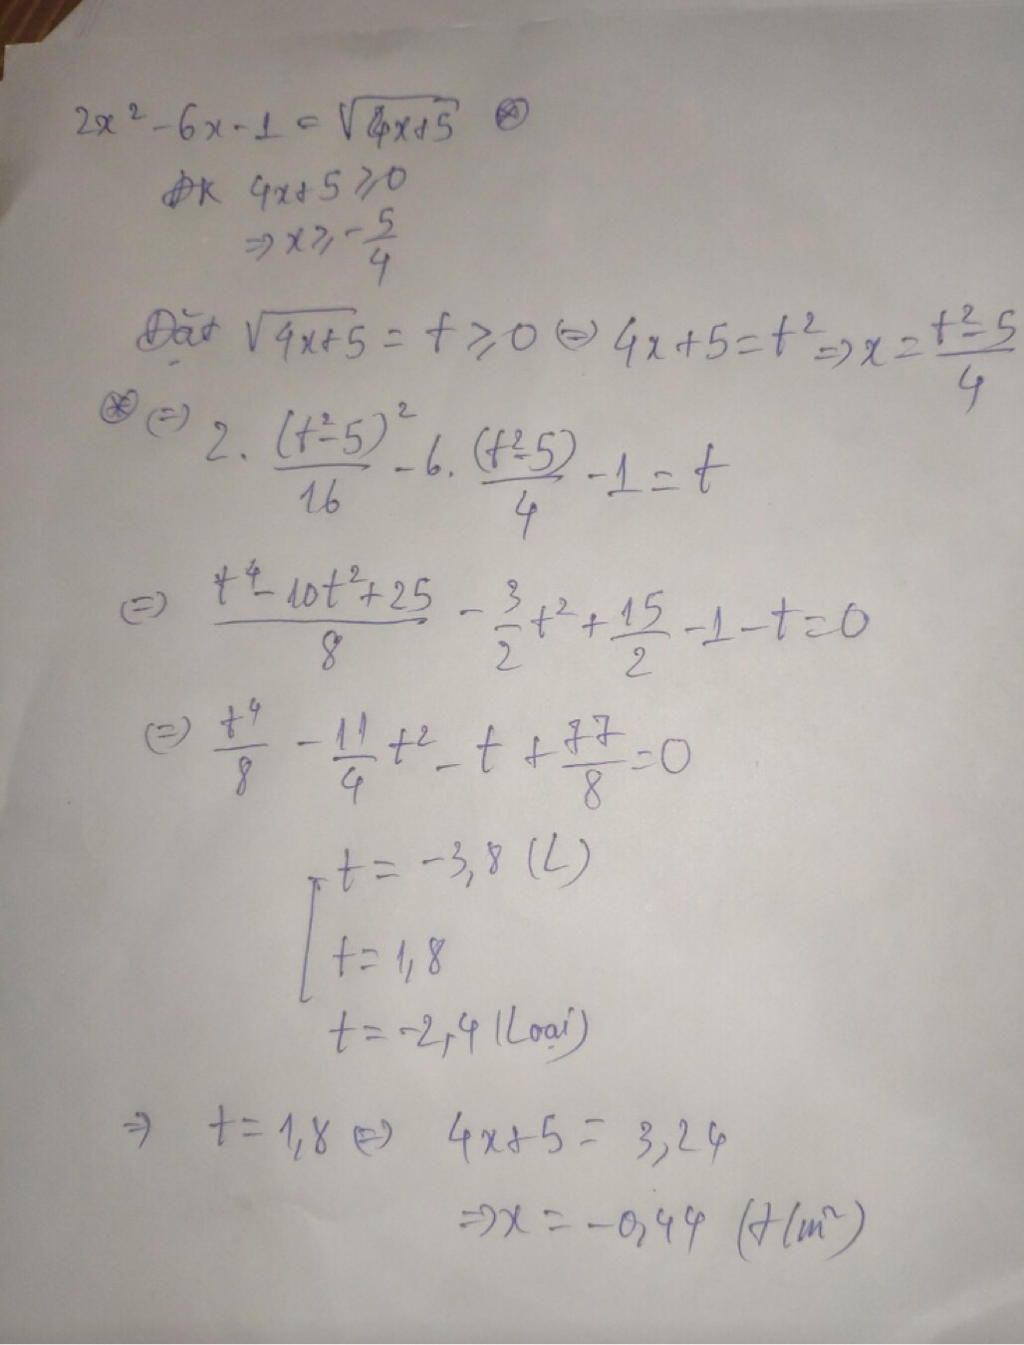 2x² - 6x - 1 = √(4x+5) ⊛
ĐK 4x+5 ≥ 0
⇒ x ≥ -5/4
Đặt √(4x+5) = t ≥ 0 ⇔ 4x+5 = t² ⇒ x = (t²-5)/4
⊛ ⇔ 2. (t²-5)²/16 - 6. (t²-5)/4 - 1 = t
⇔ (t⁴ - 10t² + 25)/8 - 3/2 t² + 15/2 - 1 - t = 0
⇔ t⁴/8 - 11/4 t² - t + 77/8 = 0
t = -3,8 (L)
t = 1,8
t = -2,4 (Loại)
⇒ t = 1,8 ⇔ 4x+5 = 3,24
⇒ x = -0,44 (t/m²)